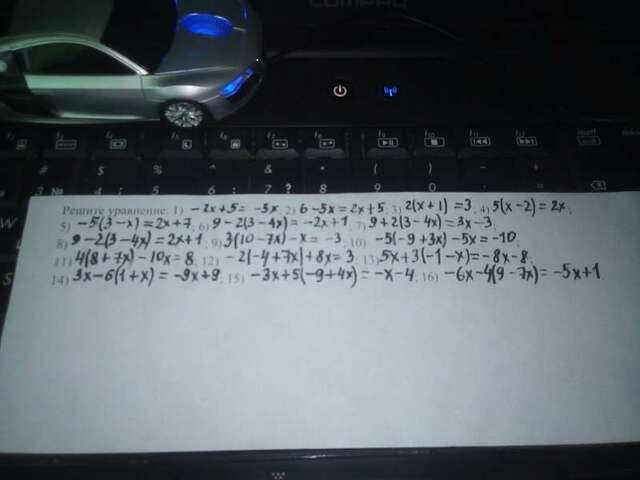 COMPAQ
Решите уравнение: 1) -2x+5= -3x; 2) 6-5x=2x+5; 3) 2(x+1)=3; 4) 5(x-2)=2x;
5) -5(3-x)=2x+7; 6) 9-2(3-4x)=-2x+1; 7) 9+2(3-4x)=3x-3;
8) 9-2(3-4x)=2x+1; 9) 3(10-7x)-x= -3; 10) -5(-9+3x)-5x=-10;
11) 4(8+7x)-10x=8; 12) -2(-4+7x)+8x=3; 13) 5x+3(-1-x)=-8x-8;
14) 3x-6(1+x)= -9x+9; 15) -3x+5(-9+4x)=-x-4; 16) -6x-4(9-7x)=-5x+1